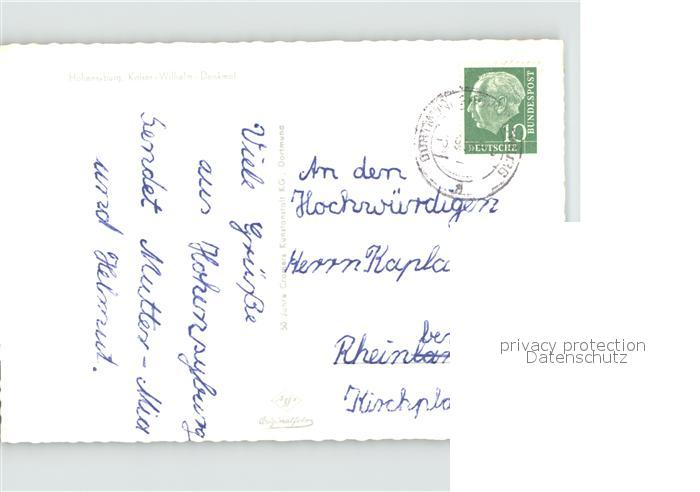 Hohensyburg, Kaiser-Wilhelm-Denkmal
Viele Grüße
aus Hohensyburg
sendet Mutter - Mia
und Helmut.
50 Jahre Cramers Kunstanstalt KG. Dortmund
DEUTSCHE
BUNDESPOST
10
DORTMUND
An den
Hochwürdigen
Herrn Kapla
Rhein
ber
Kirchpla
Originalfoto
privacy protection
Datenschutz